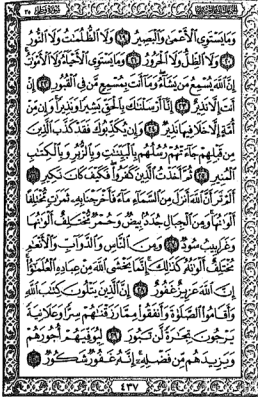 وَمَا يَسْتَوِي الْأَعْمَىٰ وَالْبَصِيرُ ١٩ وَلَا الظُّلُمَاتُ وَلَا النُّورُ
٢٠ وَلَا الظِّلُّ وَلَا الْحَرُورُ ٢١ وَمَا يَسْتَوِي الْأَحْيَاءُ وَلَا الْأَمْوَاتُ
إِنَّ اللَّهَ يُسْمِعُ مَن يَشَاءُ وَمَا أَنتَ بِمُسْمِعٍ مَّن فِي الْقُبُورِ ٢٢ إِنْ
أَنتَ إِلَّا نَذِيرٌ ٢٣ إِنَّا أَرْسَلْنَاكَ بِالْحَقِّ بَشِيرًا وَنَذِيرًا وَإِن مِّنْ
أُمَّةٍ إِلَّا خَلَا فِيهَا نَذِيرٌ ٢٤ وَإِن يُكَذِّبُوكَ فَقَدْ كَذَّبَ الَّذِينَ
مِن قَبْلِهِمْ جَاءَتْهُمْ رُسُلُهُم بِالْبَيِّنَاتِ وَبِالزُّبُرِ وَبِالْكِتَابِ
الْمُنِيرِ ٢٥ ثُمَّ أَخَذْتُ الَّذِينَ كَفَرُوا فَكَيْفَ كَانَ نَكِيرِ ٢٦
أَلَمْ تَرَ أَنَّ اللَّهَ أَنزَلَ مِنَ السَّمَاءِ مَاءً فَأَخْرَجْنَا بِهِ ثَمَرَاتٍ مُّخْتَلِفًا
أَلْوَانُهَا وَمِنَ الْجِبَالِ جُدَدٌ بِيضٌ وَحُمْرٌ مُّخْتَلِفٌ أَلْوَانُهَا
وَغَرَابِيبُ سُودٌ ٢٧ وَمِنَ النَّاسِ وَالدَّوَابِّ وَالْأَنْعَامِ
مُخْتَلِفٌ أَلْوَانُهُ كَذَٰلِكَ إِنَّمَا يَخْشَى اللَّهَ مِنْ عِبَادِهِ الْعُلَمَاءُ
إِنَّ اللَّهَ عَزِيزٌ غَفُورٌ ٢٨ إِنَّ الَّذِينَ يَتْلُونَ كِتَابَ اللَّهِ
وَأَقَامُوا الصَّلَاةَ وَأَنفَقُوا مِمَّا رَزَقْنَاهُمْ سِرًّا وَعَلَانِيَةً
يَرْجُونَ تِجَارَةً لَّن تَبُورَ ٢٩ لِيُوَفِّيَهُمْ أُجُورَهُمْ
وَيَزِيدَهُم مِّن فَضْلِهِ إِنَّهُ غَفُورٌ شَكُورٌ ٣٠
٤٣٧